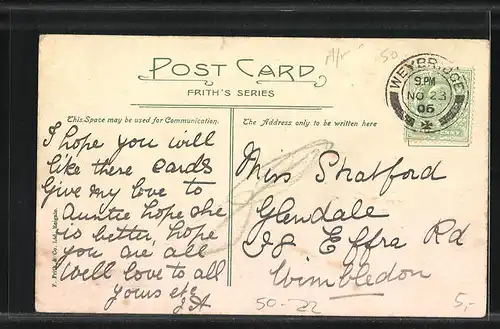 A/r
50
POST CARD
FRITH'S SERIES
WEYBRIDGE
9.PM
NO 23
06
This Space may be used for Communication.
The Address only to be written here
I hope you will
like these cards
Give my love to
Auntie hope she
is better, hope
you are all
well love to all
yours etc
F. Frith & Co. Ltd., Reigate.
Miss Stratford
Glendale
Effra Rd
Wimbledon
50-22
5,-